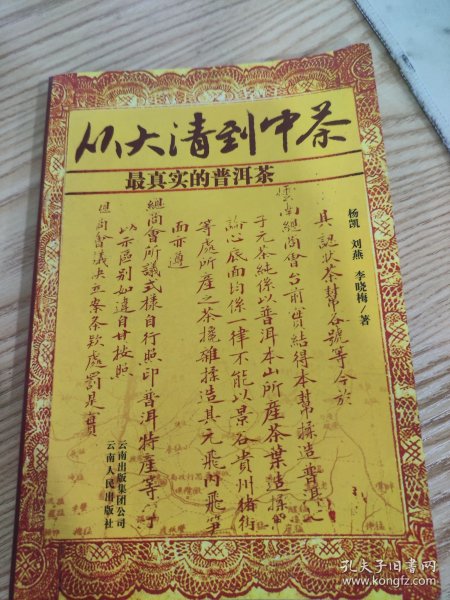 从大清到中茶
最真实的普洱茶
杨凯 刘燕 李晓梅/著
具認狀茶幇各號等今於
雲南總商會台前實結得本幇揉造普洱之
子元茶純係以普洱本山所產茶葉造揉
論心底面均係一律不能以景谷貴州猪街
等處所產之茶攙雜揉造其元飛内飛筆
而亦遵
總商會所議式樣自行照印普洱特產等
以示區别如違自甘按照
總商會議决立案条欵處罰是實
云南出版集团公司
云南人民出版社
孔夫子旧书网
www.kongfz.com